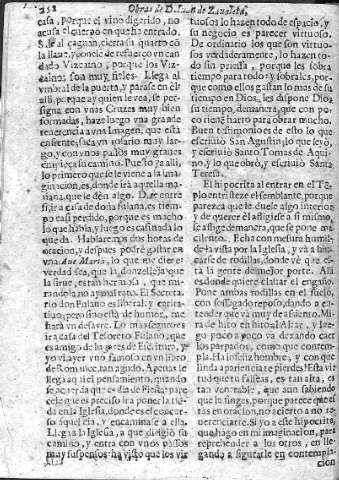 252 Obras de D. Juan de Zavaleta,
casa, porque el vino digerido, no
acusa el cuerpo en que ha entrado.
Sale al çaguan, cierra su quarto cō
la llaue, y ponele de resfuerço vn can
dado Vizcaino, porque los Viz-
cainos son muy fieles. Llega al
vmbral de la puerta, y parase en èl
alli, porque ay quien le vea, se per-
signa con vnas Cruzes muy bien
formadas, haze luego vna grande
reuerencia a vna Imagen, que està
enfrente, saca vn rosario muy lar-
go, y con vnos passos muy graues
empieça su camino. Puesto ya alli,
lo primero que se le viene a la ima
ginacion, es, donde irà aquella ma-
ñana, que le dèn algo. De entre
si, ir a casa de doña fulana, es tiem
po casi perdido, porque es macho
lo que habla, y luego es casi nada lo
que da. Hablaremos dos horas de
oracion, y despues podrè gastar en
vna Aue Maria, lo que me diere
verdad sea, que la donzelleja que
la sirue, es tan hermosa, que mi-
randola no ayunorato. El Secreta-
rio don Fulano es liberal, y caritá-
tiuo; pero sino està de humor, me
harà vn desayre. Lo mas seguro es
ir a casa del Tesorero Fulano, que
es amigo de mugeres de Escriuir, y
yo viayer vno famoso en vn libro
de Romance, tan agudo. Apenas le
llega aqui el pensamiento, quando
se acuerda que es dia de Fiesta, pare
cele que es preciso ir a poner la tien
da en la Iglesia, donde es el concur-
so aquel dia, y encaminase a ella.
Llega a la Iglesia, a que dirigiò su
camino, y entra con vnos passos
muy suspensos: ha visto que los vir
tuosos lo hazen todo de espacio, y
su negocio es parecer virtuoso.
De ordinario los que son virtuo-
sos verdaderamente, lo hazen to-
do sin priessa, porque les sobra
tiempo para todo: y sobrales, por-
que como ellos gastan lo mas de su
tiempo en Dios, les dispone Dios
su tiempo, de manera, que con po-
co tienē harto para obrar mucho.
Buen testimonio es desto lo que
escriuiò San Agustin, lo que leyò,
y escriuiò Santo Tomas de Aqui-
no, y lo que obrò, y escriuiò Santa
Teresa.
El hipocrita al entrar en el Tē-
plo entristeze el semblante, porque
parezca que le duele algo interior
y de querer èl afligirse a si mismo,
se aflige de manera, que se pone ma
cilento. Echa con mesura humil-
de la vista por la Iglesia, y va a hin-
carse de rodillas, donde vè que es-
tà la gente de mejor porte. Alli
es donde quiere clauar el engaño.
Pone ambas rodillas en el suelo,
con sossegado reposo, dando a en-
tender que và muy de assiento. Mi-
ra de hito en hito al Altar, y lue-
go poco a poco và dexando caer
los parpados, como que contem-
pla. Ha infeliz hombre, y con que
linda apariencia te pierdes! Esta vir
tud que tu falseas, es tan alta, es
tan venerable, que aun sabiendo
que la finges, porque parece que es
tàs en oracion, no acierto a no re-
uerenciarte. Si yo a este hipocrita,
que hago en mi imaginacion, para
reprehender a los otros, en lle-
gando a figurarle en contempla-
cion